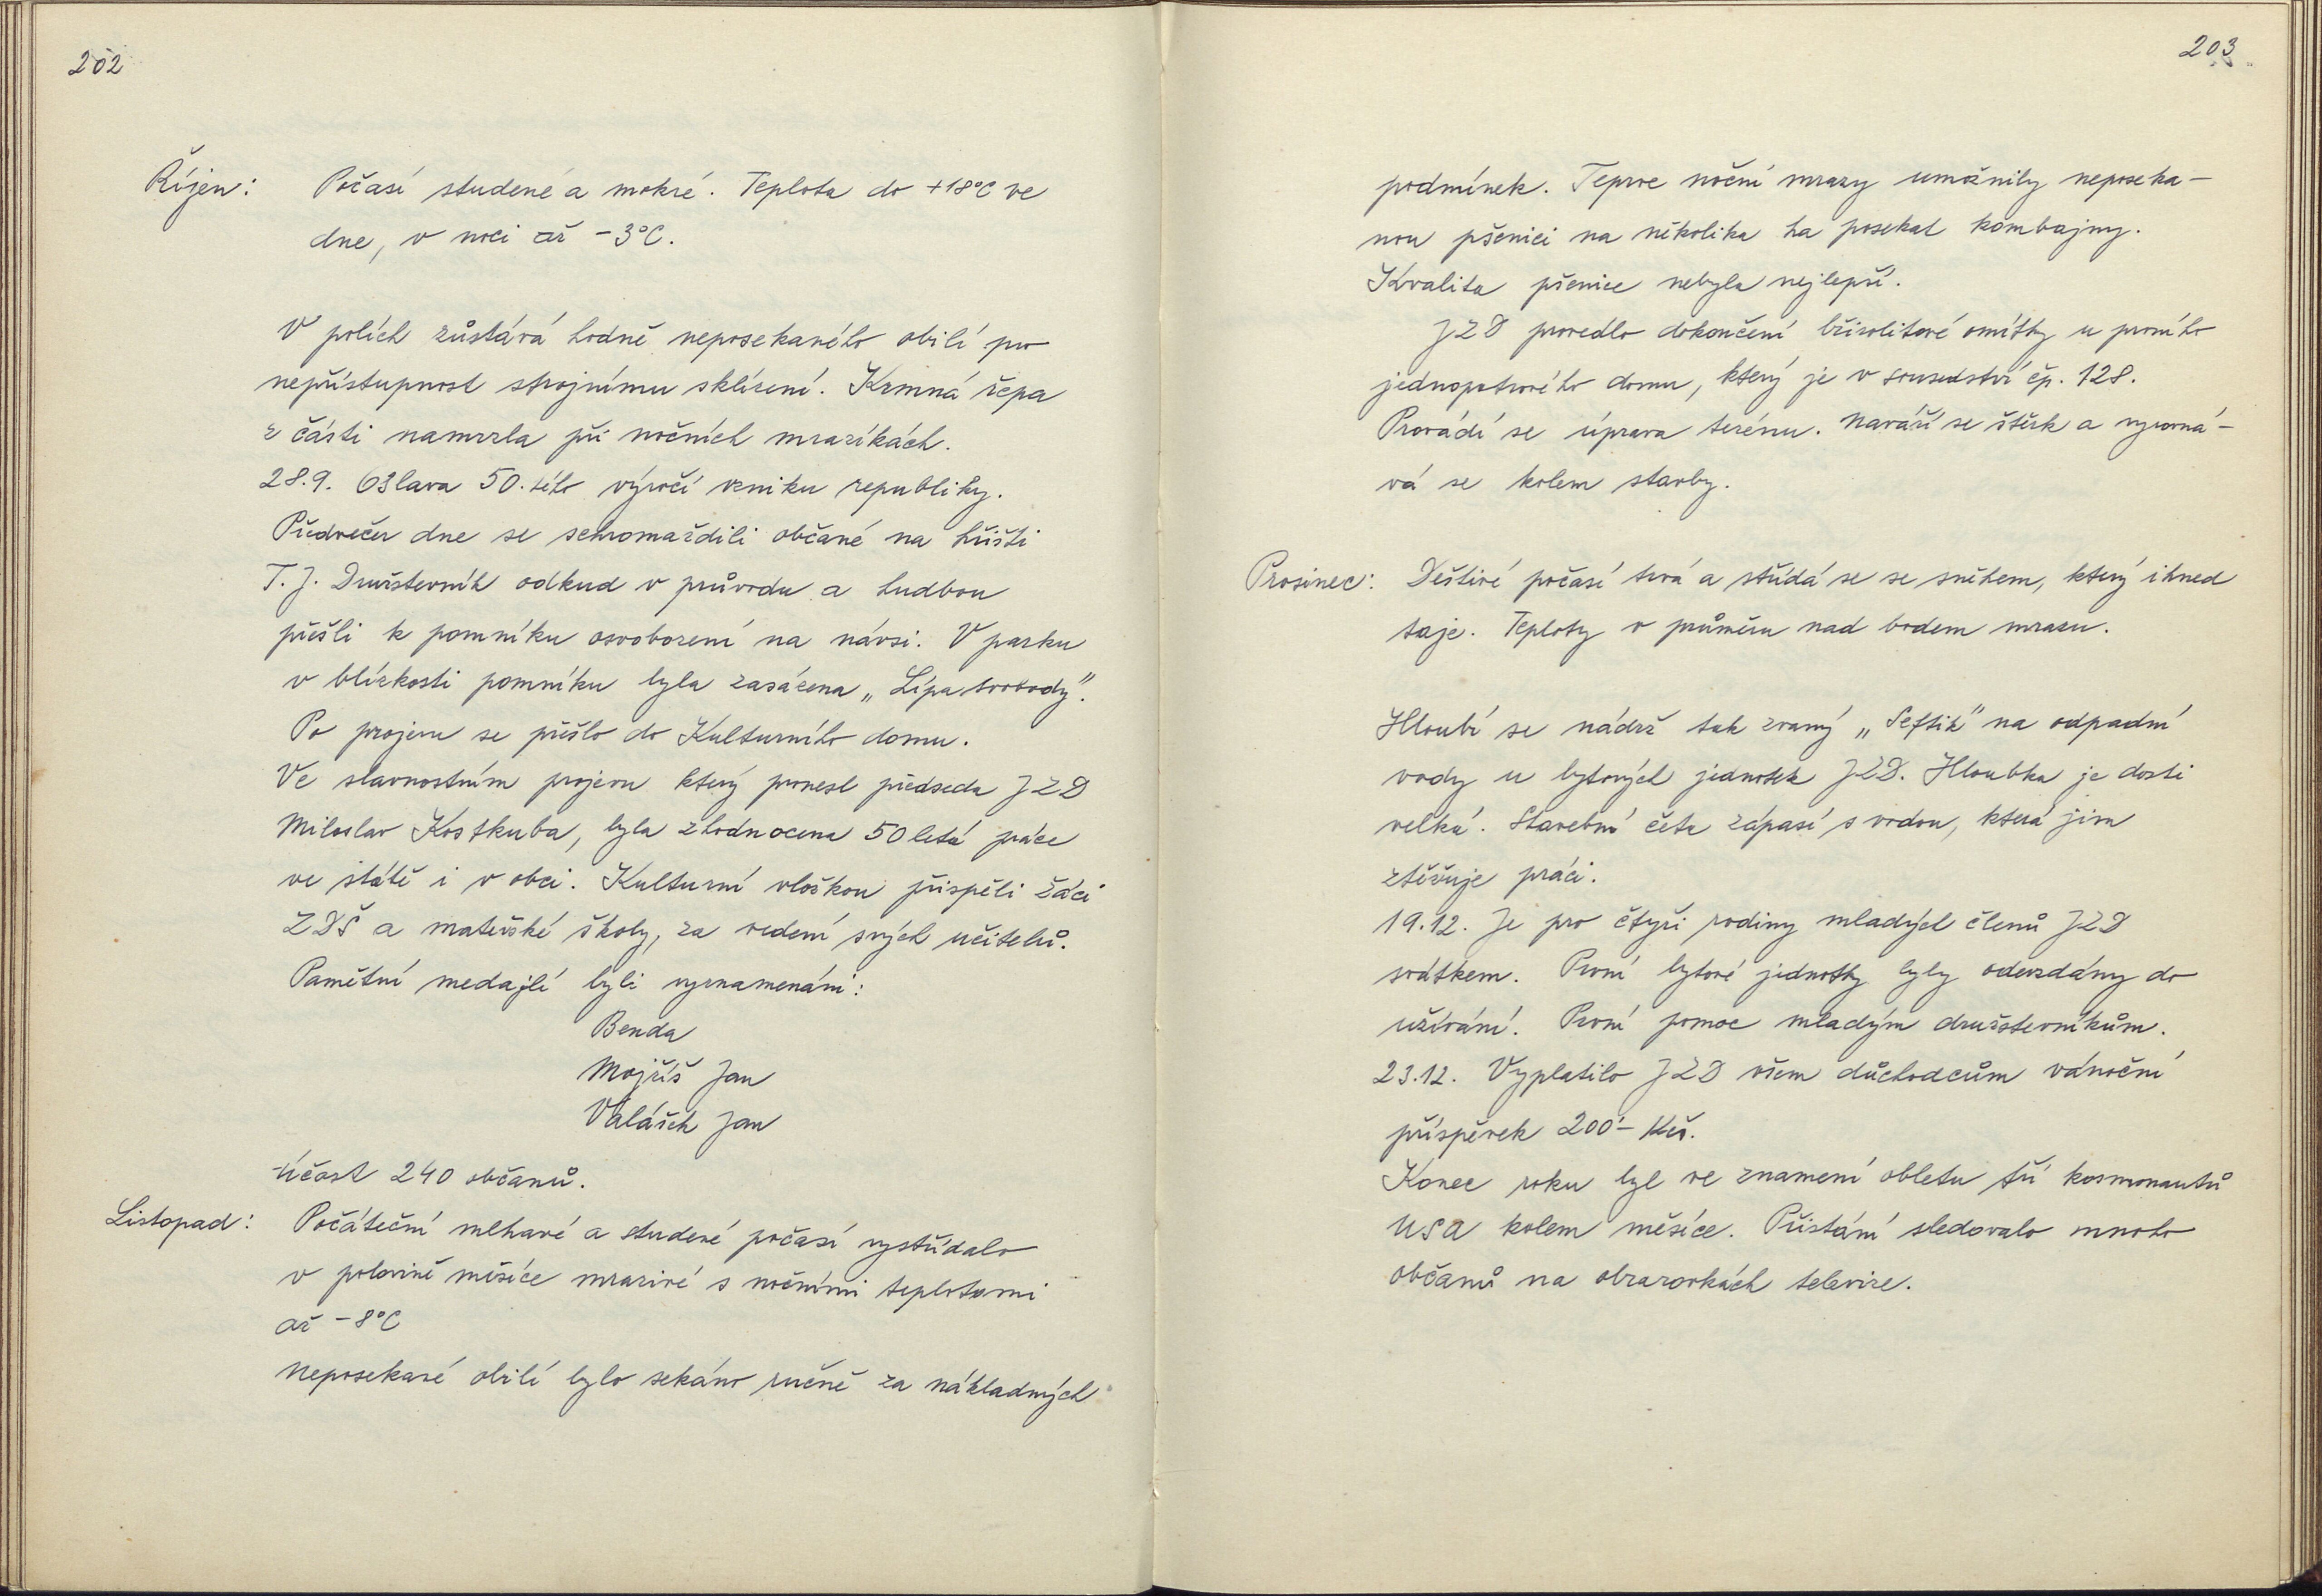 202
Říjen: Počasí studené a mokré. Teplota do +18°C ve
dne, v noci až -3°C.
V polích zůstává hodně neposekaného obilí pro
nepřístupnost strojnímu sklízení. Krmná řepa
z části namrzla při nočních mrazíkách.
28.9. Oslava 50.tého výročí vzniku republiky.
Předvečer dne se schromaždili občané na hřišti
T.J. Družstevník odkud v průvodu a hudbou
přešli k pomníku osvobození na návsi. V parku
v blízkosti pomníku byla zasázena „Lípa svobody".
Po projevu se přešlo do Kulturního domu.
Ve slavnostním projevu který pronesl předseda JZD
Miloslav Kostkuba, byla zhodnocena 50letá práce
ve státě i v obci. Kulturní vložkou přispěli žáci
ZDŠ a mateřské školy, za vedení svých učitelů.
Pamětní medajlí byli vyznamenáni:
Benda
Mojžíš Jan
Valášek Jan
Účast 240 občanů.
Listopad: Počáteční mlhavé a studené počasí vystřídalo
v polovině měsíce mrazivé s nočními teplotami
až -8°C
Neposekané obilí bylo sekáno ručně za nákladných
203
podmínek. Teprve noční mrazy umožnily neposeka-
nou pšenici na několika ha posekat kombajny.
Kvalita pšenice nebyla nejlepší.
JZD provedlo dokončení břizolitové omítky u prvního
jednopatrového domu, který je v sousedství čp. 128.
Provádí se úprava terénu. Naváží se štěrk a vyrovná-
vá se kolem stavby.
Prosinec: Deštivé počasí trvá a střídá se se sněhem, který ihned
taje. Teploty v průměru nad bodem mrazu.
Hloubí se nádrž tak zvaný „Seftik" na odpadní
vody u bytových jednotek JZD. Hloubka je dosti
velká. Stavební četa zápasí s vodou, která jim
ztěžuje práci.
19.12. Je pro čtyři rodiny mladých členů JZD
svátkem. První bytové jednotky byly odevzdány do
užívání. První pomoc mladým družstevníkům.
23.12. Vyplatilo JZD všem důchodcům vánoční
příspěvek 200'- Kčs.
Konec roku byl ve znamení obletu tří kosmonautů
USA kolem měsíce. Přistání sledovalo mnoho
občanů na obrazovkách televize.